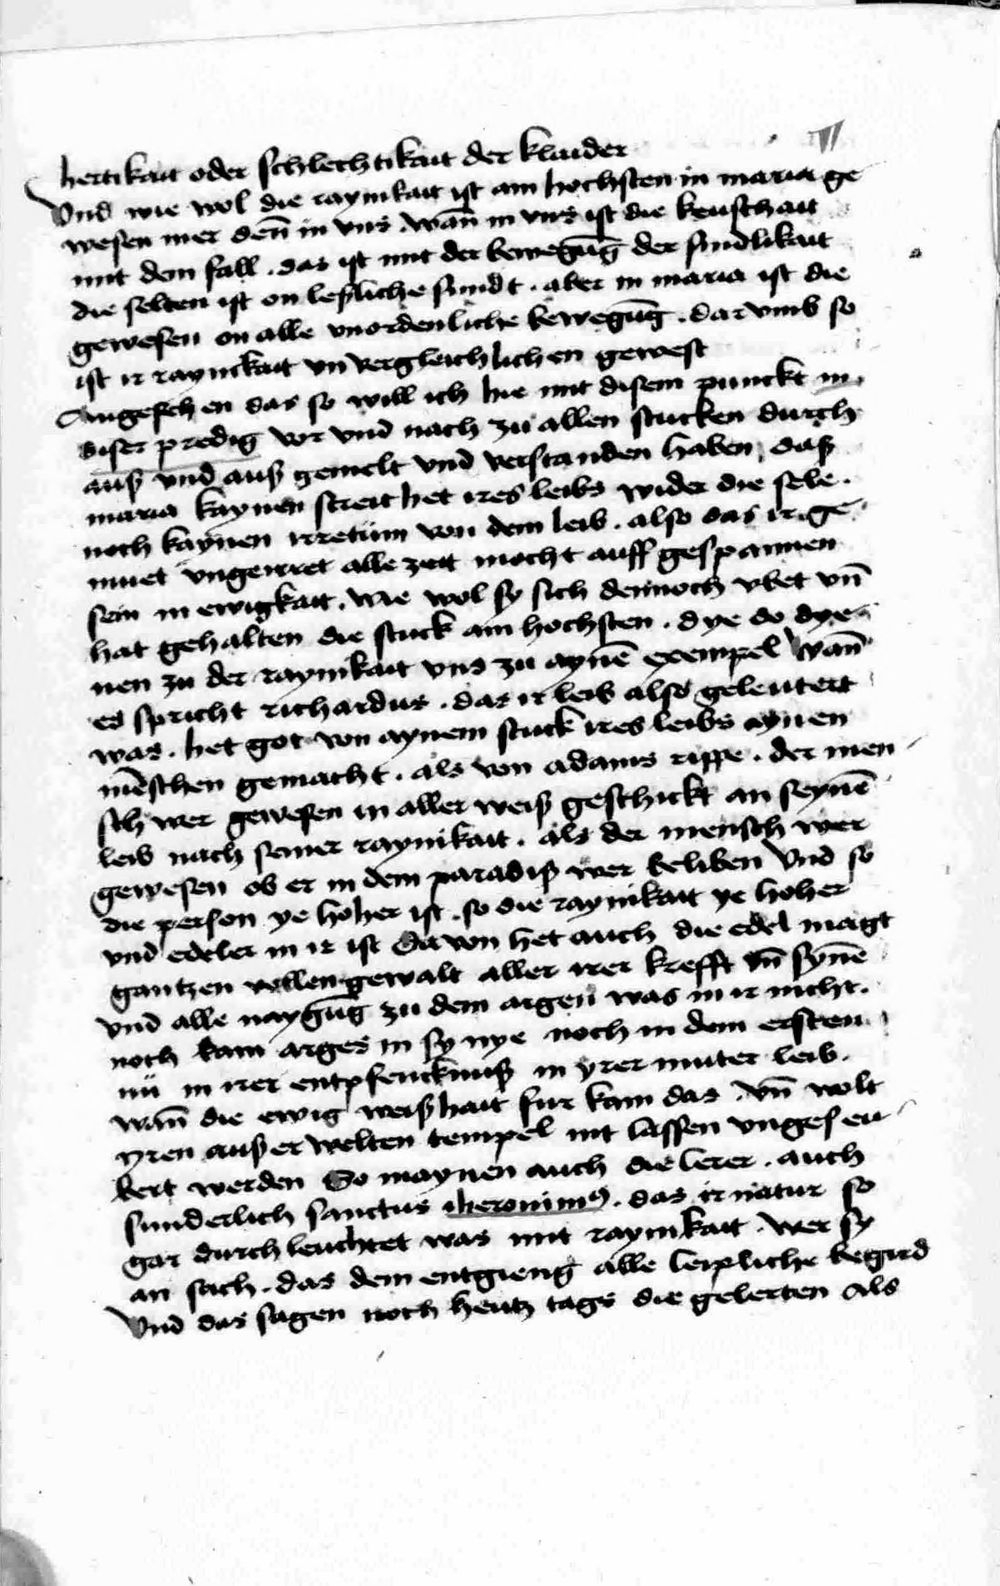 VI
hertikait oder schlechtikait der klaider
Vnd wie wol die raynikait ist am hochsten in maria ge
wesen mer den̄ in vns. wan̄ in vns ist die keuschait
mit dem fall. das ist mit der bewegūg der sindlikait
die selten ist on leßliche sundt. aber in maria ist die
gewesen on alle vnordenliche bewegūg. dar vmb so
ist ir raynickait vn vergleichlichen gewest
Angesehen das so will ich hie mit disem punckt in
diser predig vor vnd nach zu allen stucken durch
auß vnd auß gemelt vnd verstanden haben, das
maria kaynen streit het ires leibs wider die sele.
noch kaynen irretum von dem leib. also das ir ge
muet vngeirret alle zeit mocht auff gespannen
sein in ewigkait. wie wol sy sich dennoch vbet vn̄
hat gehalten die stuck am hochsten. dye do dye
nen zu der raynikait vns zu aynē exempel wan̄
es spricht richardus. das ir leib also geleutert
was. het got von aynem stuck ires leibs aynen
mēschen gemacht. als von adams rippe. der men
sch wer gewesen in aller weiß geschickt an seynē
leib nach seiner raynikait. als der mensch wer
gewesen ob er in dem paradiß wer beliben Vnd so
die person ye hoher ist. so die raynikait ye hoher
vnd edeler in ir ist Da von het auch die edel magt
gantzen vollen gewalt aller irer krefft vn̄ synē
vnd alle naygūg zu dem argen was in ir nicht.
noch kam arges in sy nye noch in dem ersten
nū in irer entpfencknuß in yrer muter leib.
wan̄ die ewig weißhait fur kam das vn̄ wolt
yren außerwelten tempel nit lassen vngeseu
bert werden So maynen auch die lerer. auch
sunderlich sanctus iheronimꝰ. das ir natur so
gar durchleuchtet was mit raynikait. wer sy
an sach. das dem entgieng alle leipliche begird
Vnd das sagen noch heutz tags die gelerten Als